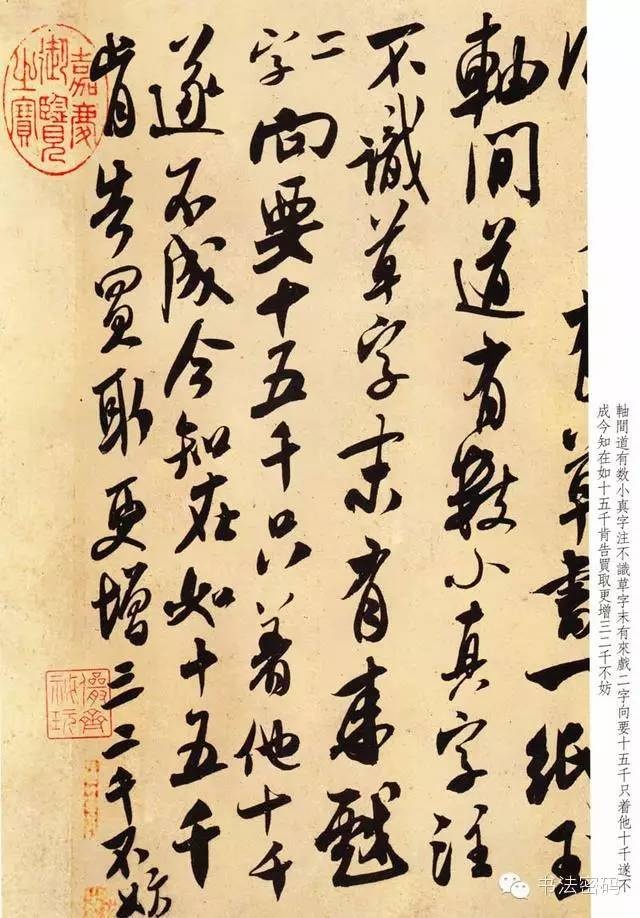 軸間道有数小真字注不識草字末有來戲二字向要十五千只着他十千遂不
成今知在如十五千肯告買取更增三二千不妨
草書一紙玉
軸間道有數小真字注
不識草字末有来戲
二字向要十五千只着他十千
遂不成今知在如十五千
肯告買取更增三二千不妨
嘉慶御覽之寶
儼齋秘玩
书法密码